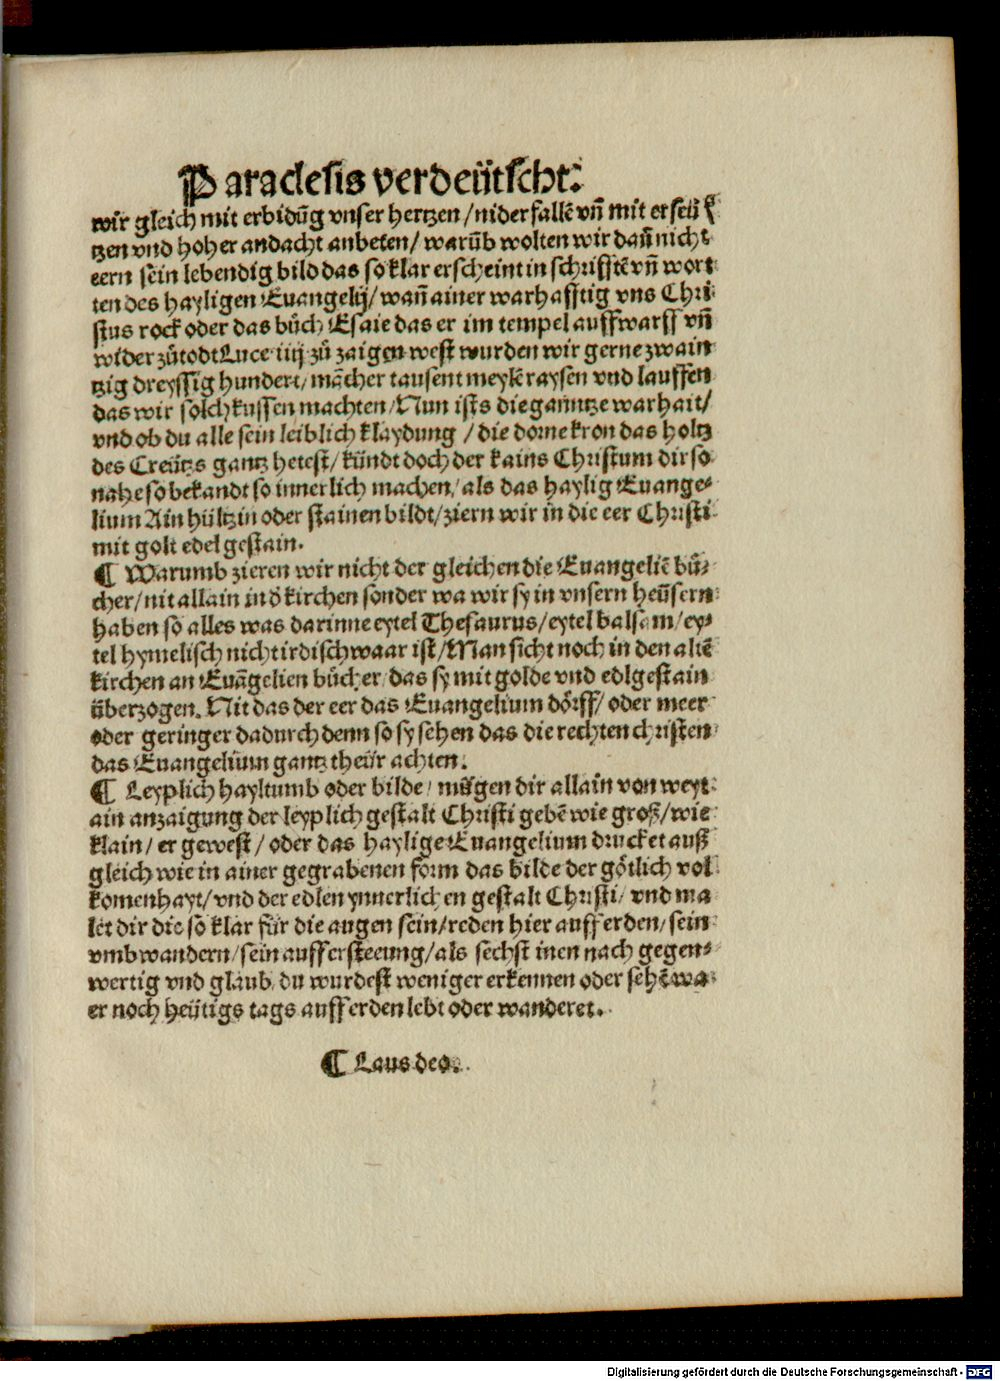 Paraclesis verdeütscht.
wir gleich mit erbidūg vnser hertzen / nider fallē vñ mit erseü f
tzen vnd hoher andacht anbeten / warūb wolten wir dañ nicht
eern sein lebendig bild das so klar erscheint in schrifftē vñ wort
ten des hayligen Euangelij / wañ ainer warhafftig vns Chri
stus rock oder das bůch Esaie das er im tempel auffwarff vñ
wider zůtodt Luce iiij zů zaigen west wurden wir gerne zwain
tzig dreyssig hundert / mācher tausent meylē raysen vnd lauffen
das wir solch kussen machten / Nun ists die ganntze warhait /
vnd ob du alle sein leiblich klaydung / die dorne kron das holtz
des Creütz gantz hetest / kündt doch der kains Christum dir so
nahe so bekandt so innerlich machen / als das haylig Euange-
lium Ain hültzin oder stainen bildt / ziern wir in die eer Christi
mit golt edel gestain.
¶ Warumb zieren wir nicht der gleichen die Euangeliē bů-
cher / nit allain in ð kirchen sonder wa wir sy in vnsern heüsern
haben so alles was darinne eytel Thesaurus / eytel balsam / ey-
tel hymelisch nicht irdisch waar ist / Man sicht noch in den altē
kirchen an Euāgelien bůcher / das sy mit golde vnd edlgestain
überzogen. Nit das der eer das Euangelium dörff / oder meer
oder geringer dadurch denn so sy sehen das die rechten christen
das Euangelium gantz theür achten.
¶ Leyplich hayltumb oder bilde / mügen dir allain von weyt
ain anzaigung der leyplich gestalt Christi gebē wie groß / wie
klain / er gewest / oder das haylige Euangelium drucket auß
gleich wie in ainer gegrabenen form das bilde der götlich vol
komenhayt / vnd der edlen ynnerlichen gestalt Christi / vnd ma
let dir die so klar für die augen sein / reden hier auff erden / sein
vmbwandern / sein auffersteeung / als sechst inen nach gegen-
wertig vnd glaub / du wurdest weniger erkennen oder sehē wa
er noch heütigs tags auff erden lebt oder wanderet.
¶ Laus deo.
Digitalisierung gefördert durch die Deutsche Forschungsgemeinschaft - DFG